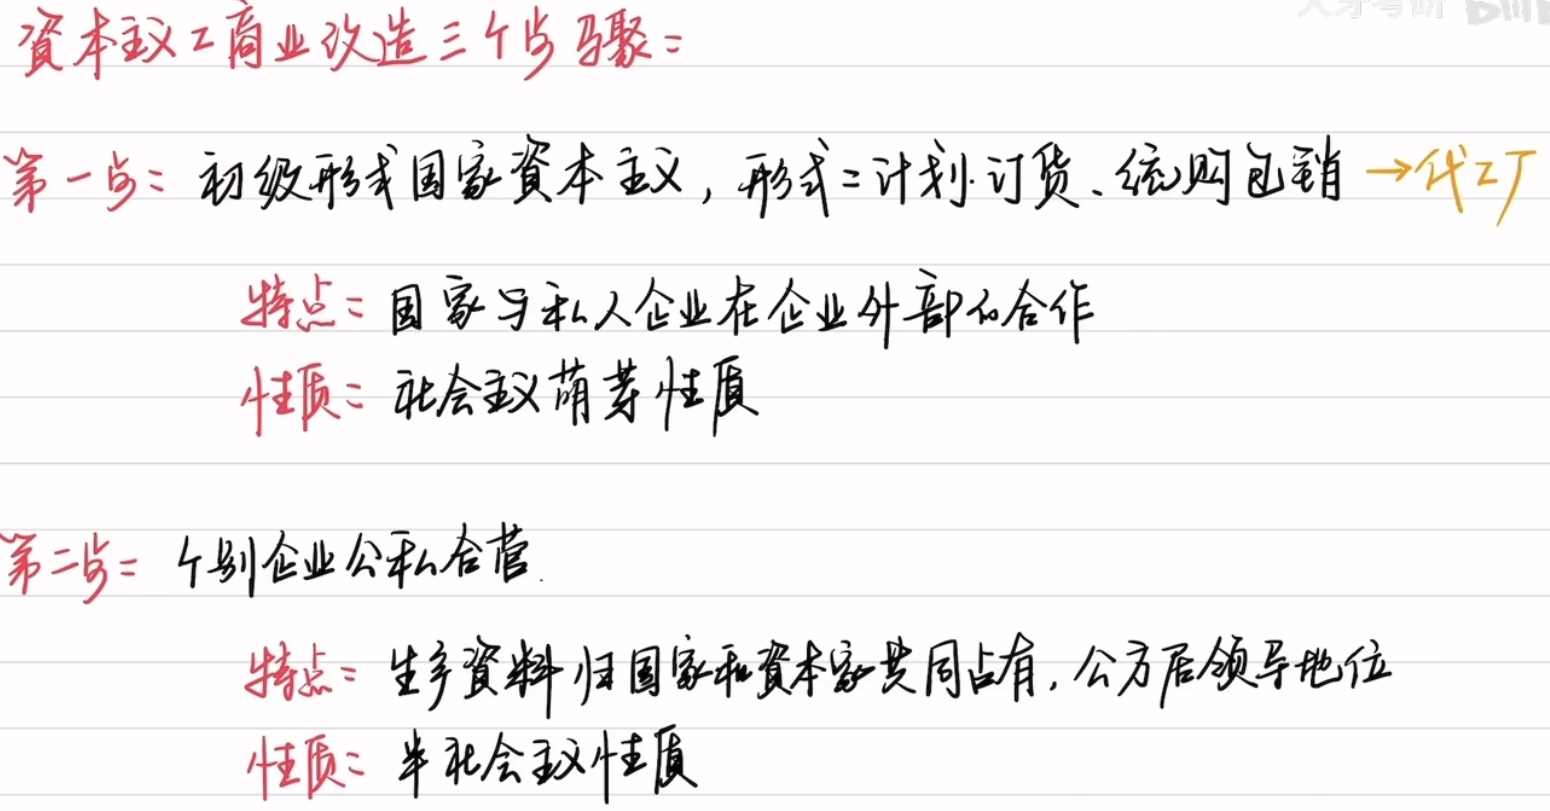 資本主义工商业改造三个步骤：
第一步：初级形式国家資本主义，形式：计划订货、统购包销→代工厂
特点：国家与私人企业在企业外部的合作
性质：社会主义萌芽性质
第二步：个别企业公私合营.
特点：生产資料归国家和資本家共同占有，公方居领导地位
性质：半社会主义性质